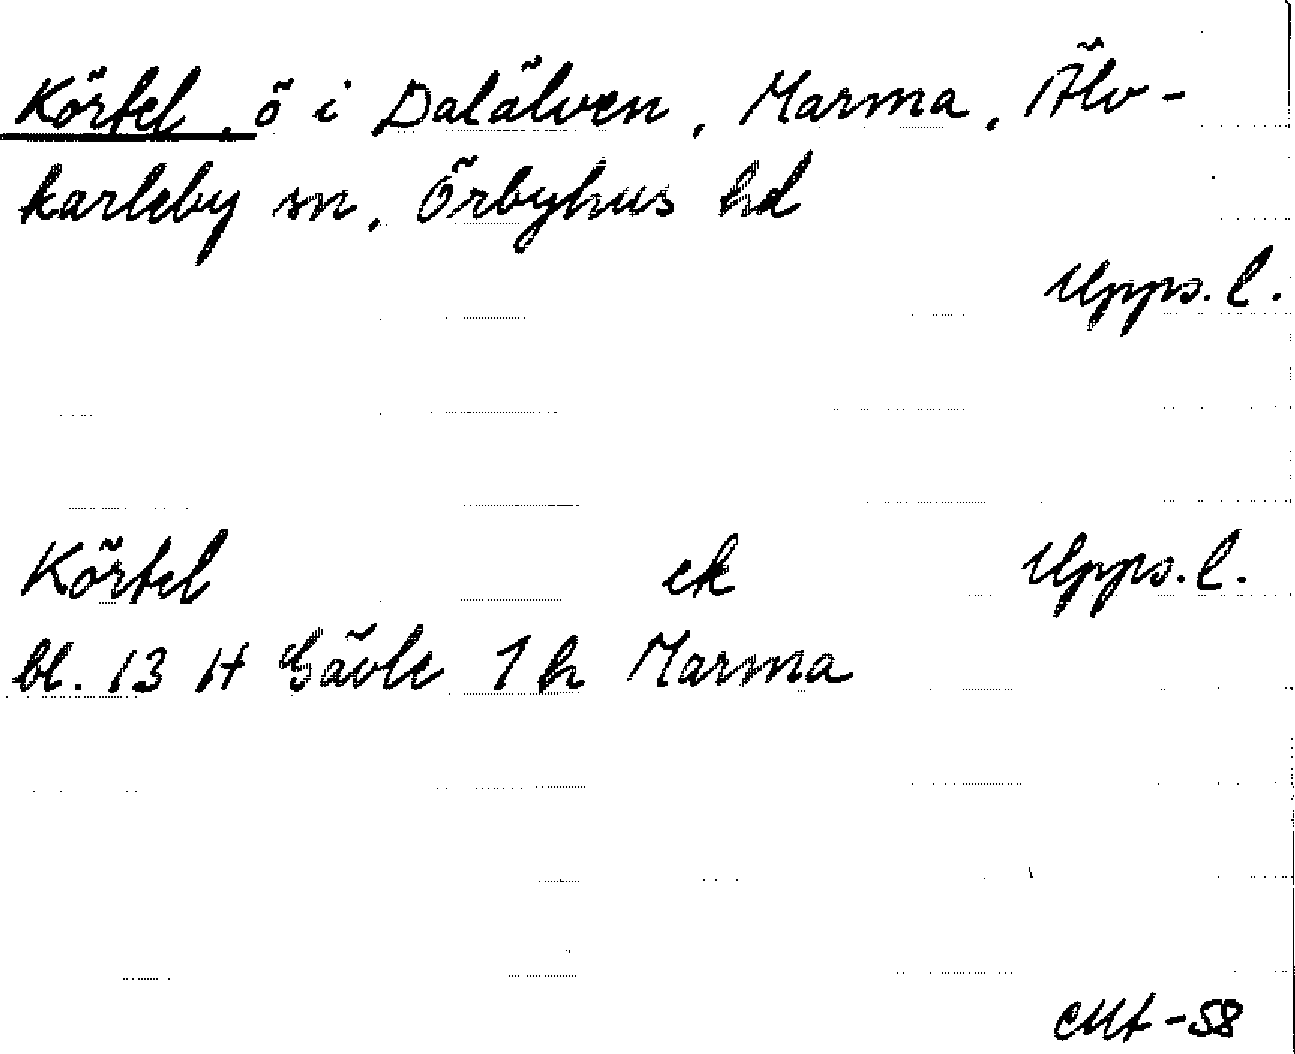 Körtel, ö i Dalälven, Marma, Älv-
karleby sn, Örbyhus hd
Upps. l.
Körtel ek Upps. l.
bl. 13 H Gävle 1 h Marma
-58